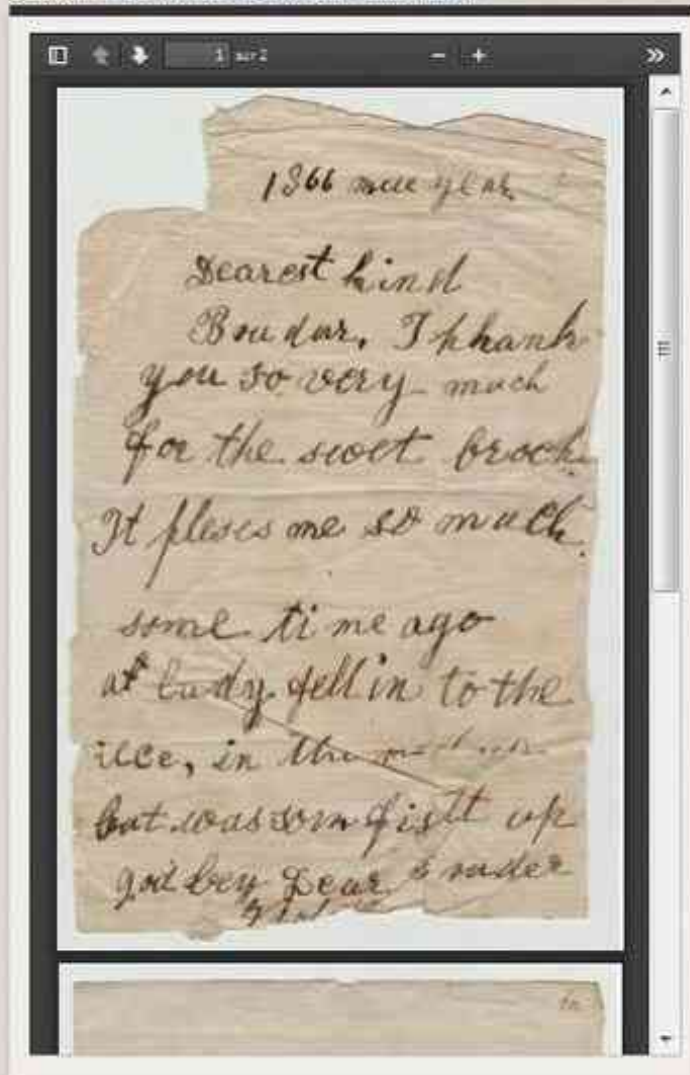 1 sur 2
1866 new year
Dearest kind
Broudar. I thank
you so very much
for the sweet broch.
It pleses me so much.
some time ago
at Lady fell in to the
ice, in the
but was som fisht up
god bey Dear Brouder